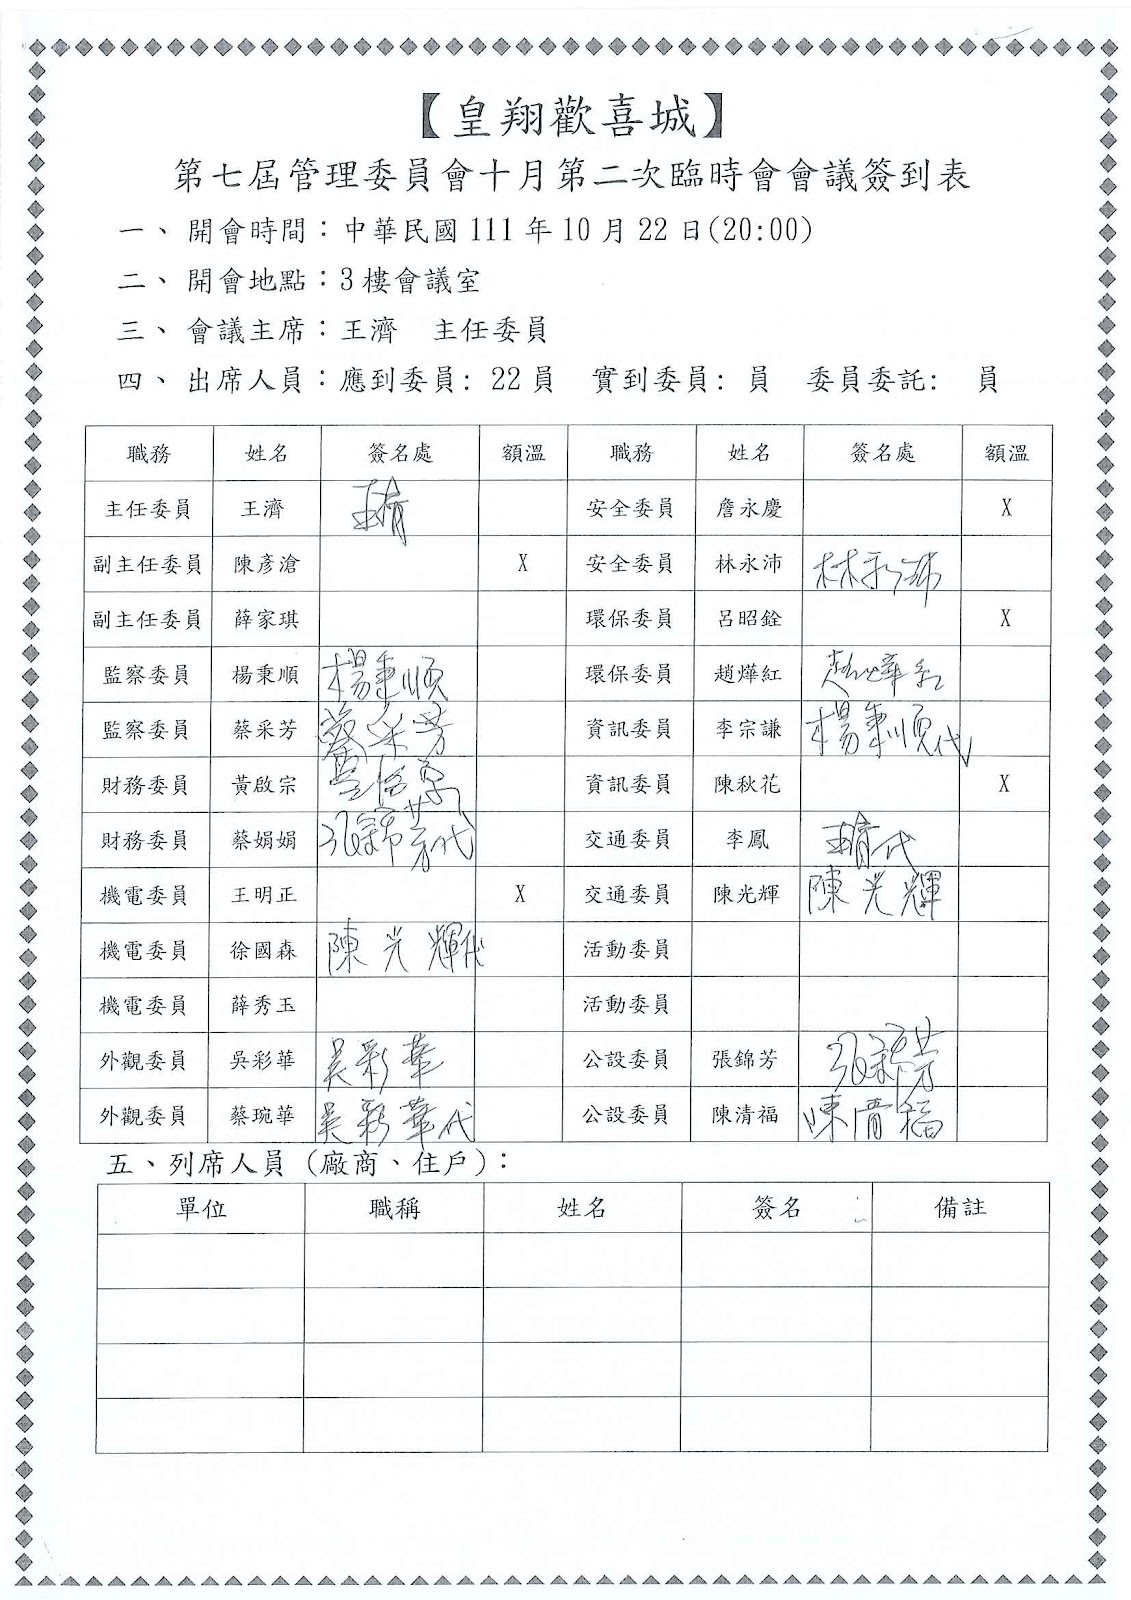 【皇翔歡喜城】
第七屆管理委員會十月第二次臨時會會議簽到表
一、 開會時間：中華民國 111 年 10 月 22 日(20:00)
二、 開會地點：3 樓會議室
三、 會議主席：王濟 主任委員
四、 出席人員：應到委員: 22 員 實到委員: 員 委員委託: 員
職務 姓名 簽名處 額溫 職務 姓名 簽名處 額溫
主任委員 王濟 王濟 安全委員 詹永慶 X
副主任委員 陳彥滄 X 安全委員 林永沛 林永沛
副主任委員 薛家琪 環保委員 呂昭銓 X
監察委員 楊秉順 楊秉順 環保委員 趙燁紅 趙燁紅
監察委員 蔡采芳 蔡采芳 資訊委員 李宗謙 楊秉順代
財務委員 黃啟宗 黃啟宗 資訊委員 陳秋花 X
財務委員 蔡娟娟 張錦芳代 交通委員 李鳳 王濟代
機電委員 王明正 X 交通委員 陳光輝 陳光輝
機電委員 徐國森 陳光輝代 活動委員
機電委員 薛秀玉 活動委員
外觀委員 吳彩華 吳彩華 公設委員 張錦芳 張錦芳
外觀委員 蔡琬華 吳彩華代 公設委員 陳清福 陳清福
五、列席人員（廠商、住戶）：
單位 職稱 姓名 簽名 備註